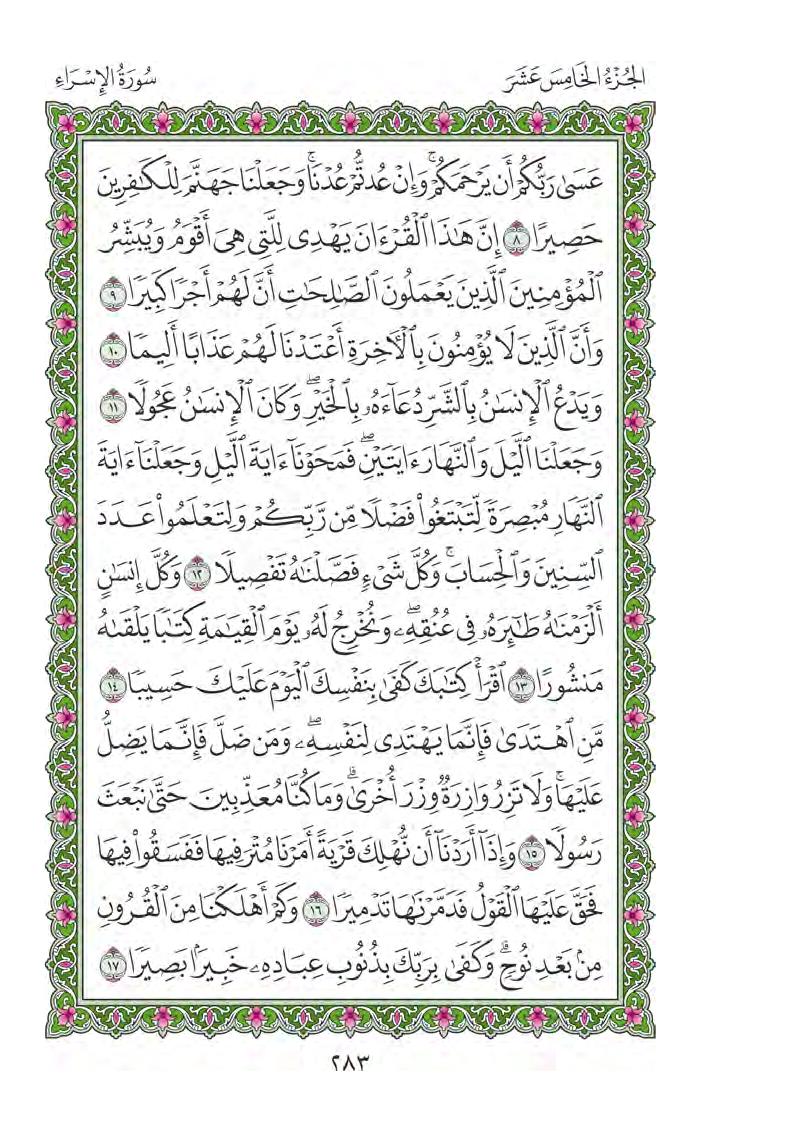 الجُزْءُ الخَامِسَ عَشَرَ
سُورَةُ الإِسْرَاءِ
عَسَىٰ رَبُّكُمْ أَن يَرْحَمَكُمْۚ وَإِنْ عُدتُّمْ عُدْنَاۚ وَجَعَلْنَا جَهَنَّمَ لِلْكَٰفِرِينَ
حَصِيرًا ٨ إِنَّ هَٰذَا ٱلْقُرْءَانَ يَهْدِى لِلَّتِى هِىَ أَقْوَمُ وَيُبَشِّرُ
ٱلْمُؤْمِنِينَ ٱلَّذِينَ يَعْمَلُونَ ٱلصَّٰلِحَٰتِ أَنَّ لَهُمْ أَجْرًا كَبِيرًا ٩
وَأَنَّ ٱلَّذِينَ لَا يُؤْمِنُونَ بِٱلْءَاخِرَةِ أَعْتَدْنَا لَهُمْ عَذَابًا أَلِيمًا ١٠
وَيَدْعُ ٱلْإِنسَٰنُ بِٱلشَّرِّ دُعَآءَهُۥ بِٱلْخَيْرِۖ وَكَانَ ٱلْإِنسَٰنُ عَجُولًا ١١
وَجَعَلْنَا ٱلَّيْلَ وَٱلنَّهَارَ ءَايَتَيْنِۖ فَمَحَوْنَآ ءَايَةَ ٱلَّيْلِ وَجَعَلْنَآ ءَايَةَ
ٱلنَّهَارِ مُبْصِرَةً لِّتَبْتَغُوا۟ فَضْلًا مِّن رَّبِّكُمْ وَلِتَعْلَمُوا۟ عَدَدَ
ٱلسِّنِينَ وَٱلْحِسَابَۚ وَكُلَّ شَىْءٍ فَصَّلْنَٰهُ تَفْصِيلًا ١٢ وَكُلَّ إِنسَٰنٍ
أَلْزَمْنَٰهُ طَٰٓئِرَهُۥ فِى عُنُقِهِۦۖ وَنُخْرِجُ لَهُۥ يَوْمَ ٱلْقِيَٰمَةِ كِتَٰبًا يَلْقَىٰهُ
مَنشُورًا ١٣ ٱقْرَأْ كِتَٰبَكَ كَفَىٰ بِنَفْسِكَ ٱلْيَوْمَ عَلَيْكَ حَسِيبًا ١٤
مَّنِ ٱهْتَدَىٰ فَإِنَّمَا يَهْتَدِى لِنَفْسِهِۦۖ وَمَن ضَلَّ فَإِنَّمَا يَضِلُّ
عَلَيْهَاۚ وَلَا تَزِرُ وَازِرَةٌ وِزْرَ أُخْرَىٰۗ وَمَا كُنَّا مُعَذِّبِينَ حَتَّىٰ نَبْعَثَ
رَسُولًا ١٥ وَإِذَآ أَرَدْنَآ أَن نُّهْلِكَ قَرْيَةً أَمَرْنَا مُتْرَفِيهَا فَفَسَقُوا۟ فِيهَا
فَحَقَّ عَلَيْهَا ٱلْقَوْلُ فَدَمَّرْنَٰهَا تَدْمِيرًا ١٦ وَكَمْ أَهْلَكْنَا مِنَ ٱلْقُرُونِ
مِنۢ بَعْدِ نُوحٍۗ وَكَفَىٰ بِرَبِّكَ بِذُنُوبِ عِبَادِهِۦ خَبِيرًۢا بَصِيرًا ١٧
٢٨٣